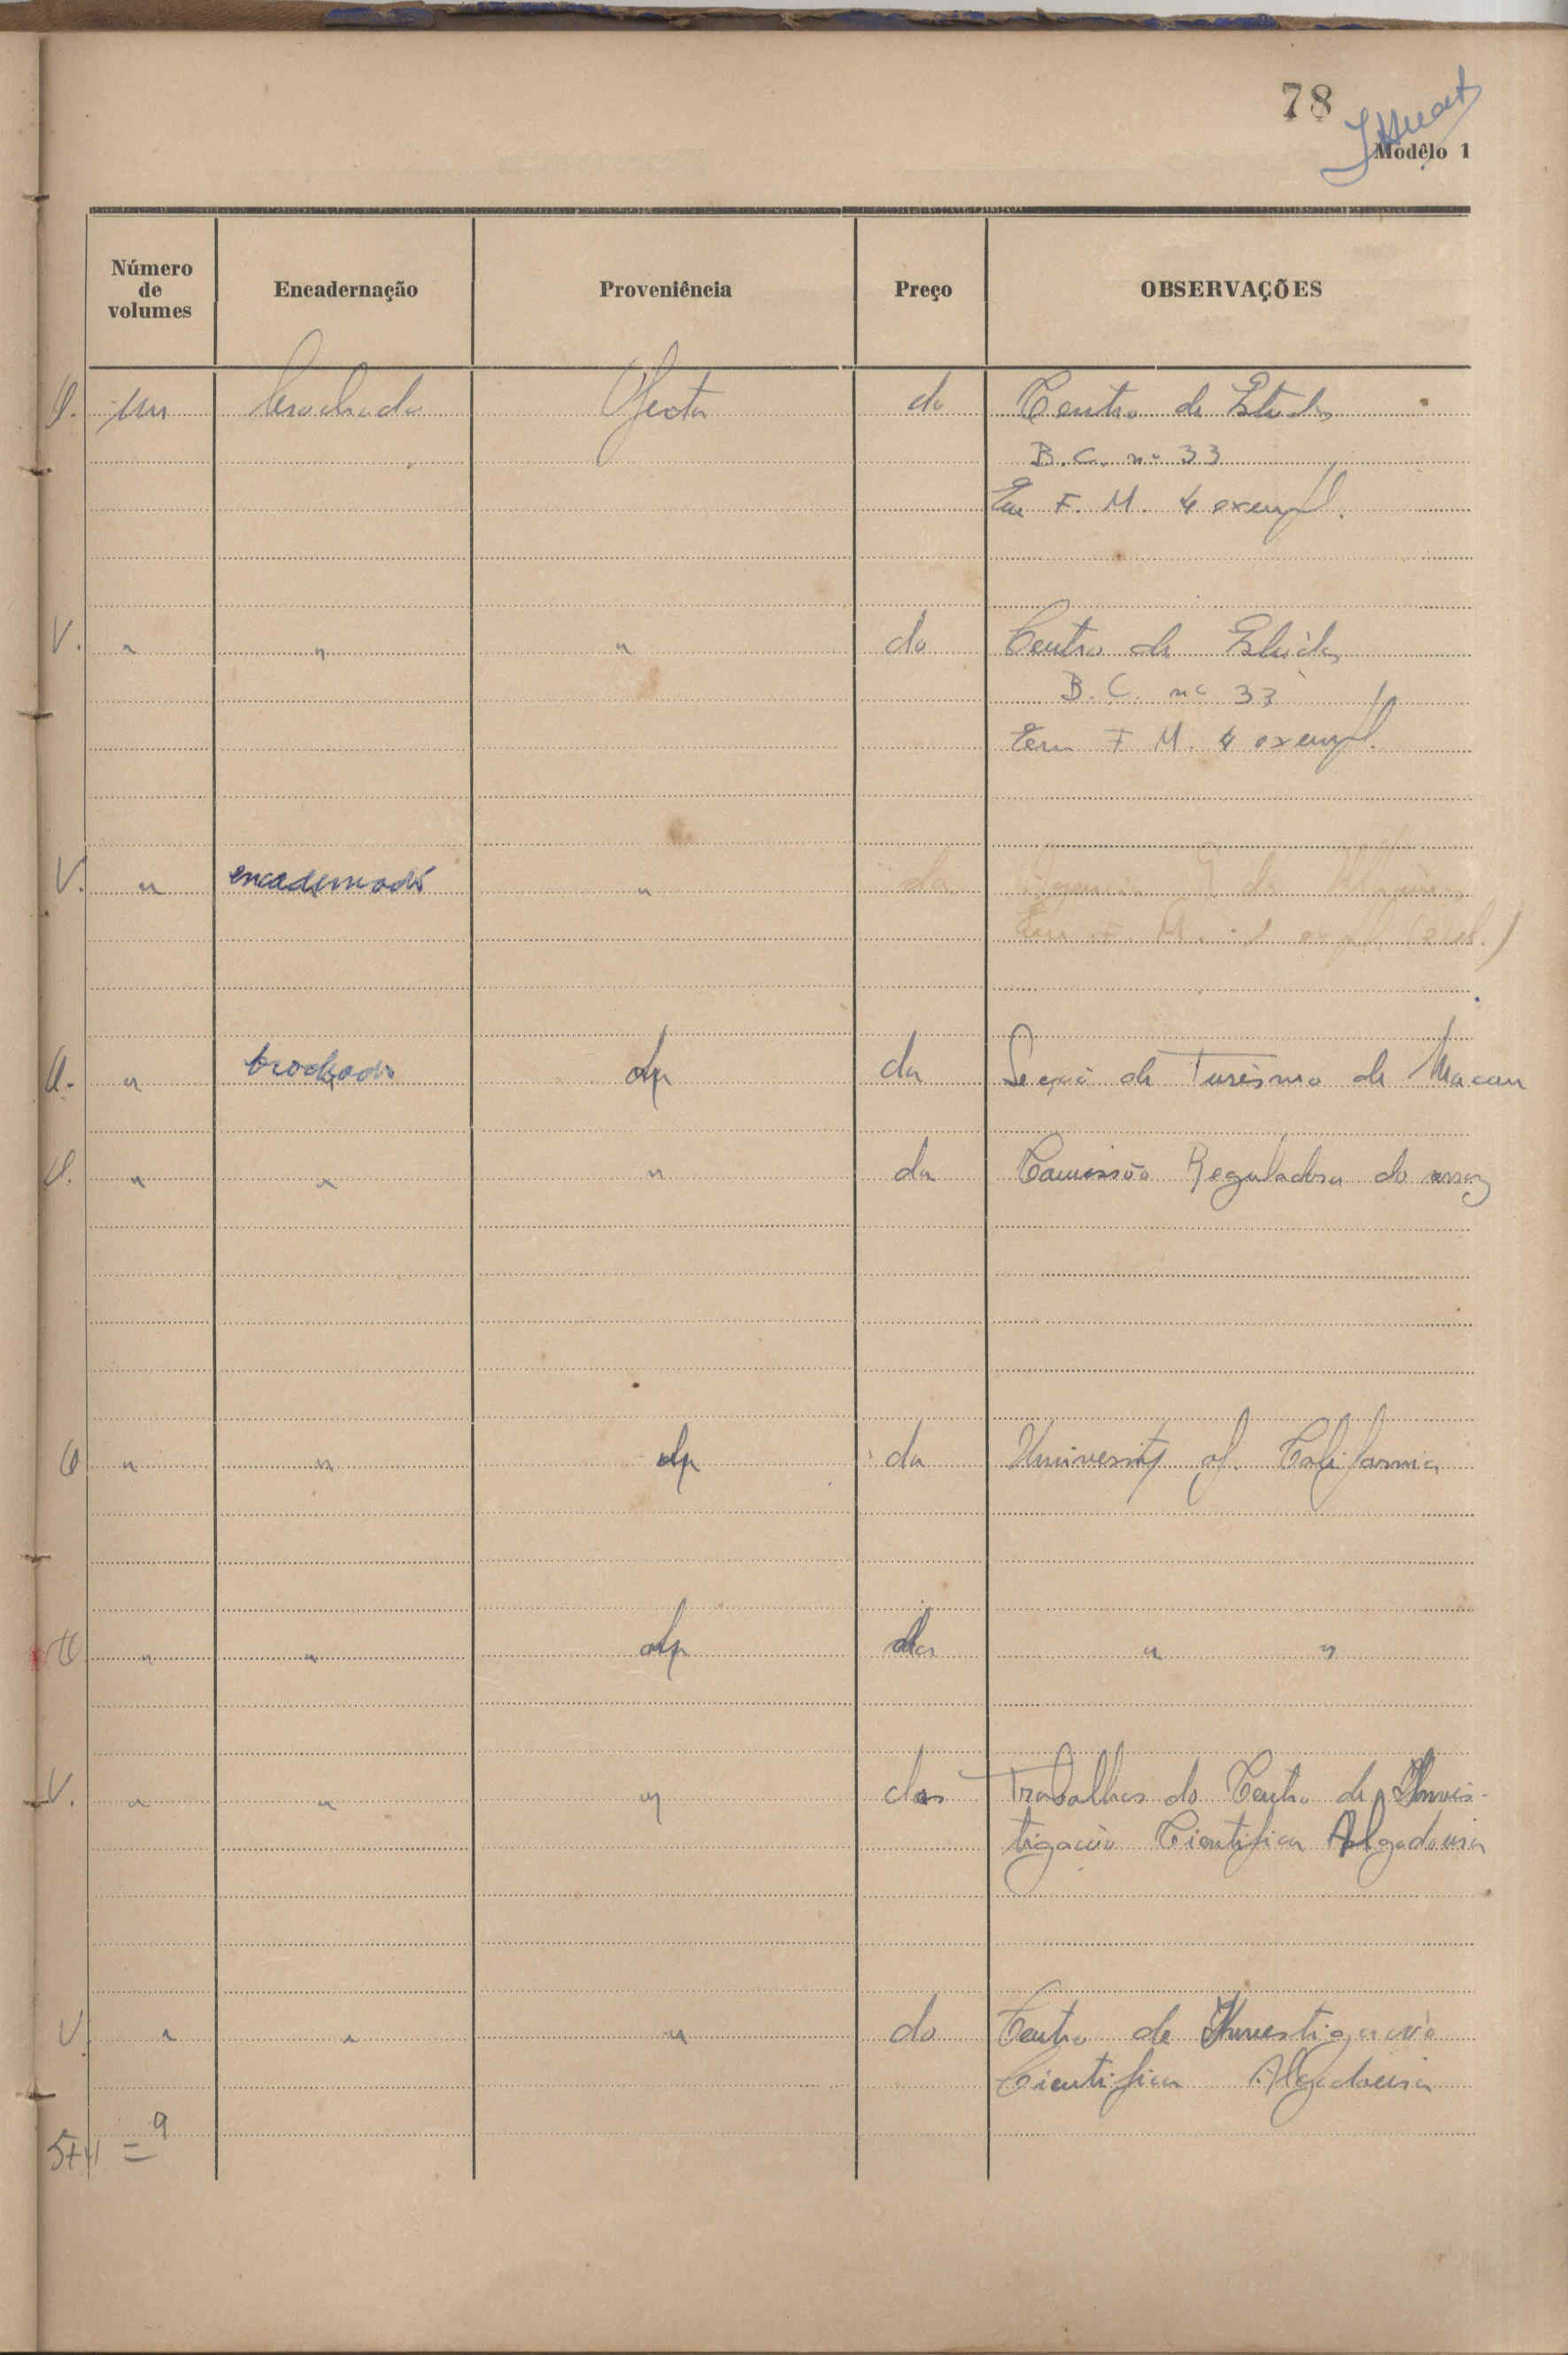 78
Modêlo 1
Número de volumes Encadernação Proveniência Preço OBSERVAÇÕES
um brochado Oferta do Centro de Estudos
B.C. nº 33
Em F. M. 4 exempl.
V. " " " do Centro de Estudos
B.C. nº 33
Em F M. 4 exempl.
V. " encadernado " da
Em F. M. 1
" brochado da Secção de Turismo de Macau
" " " da Comissão Reguladora do arroz
" " da University of California
" " da " "
V. " " " dos Trabalhos do Centro de Inves-
tigação Cientifica Algodoeira
V. " " " do Centro de Investigação
Cientifica Algodoeira
5+4 = 9